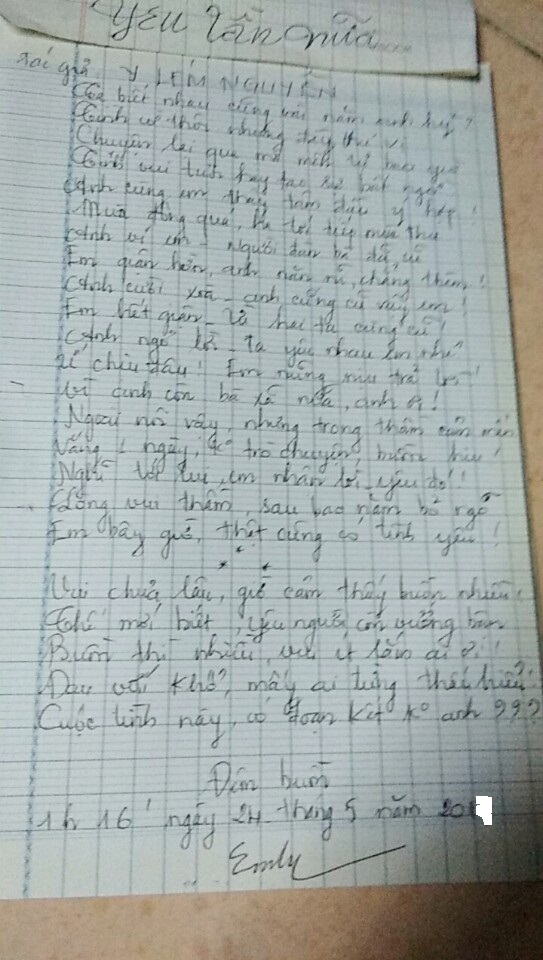 Yêu lần nữa...
Tác giả. Y LEM NGUYỄN
biết nhau cũng vài năm anh hỷ?
thôi nhưng đầy thú vị
Chuyện lại qua
vui tính hay tạo sự bất ngờ
Anh cùng em tâm đầu ý hợp!
Mùa đông quá, hạ tới tiếp mùa thu
Anh ví em - người đàn bà
Em giận hờn, anh năn nỉ, chẳng thèm!
Anh cười xòa - anh cũng cũ vậy em!
Em hết giận - là hai ta cùng cũ!
Anh ngỏ lời - ta yêu nhau em nhé
chịu đâu! Em trả lời!
Vì anh còn bà xã nữa, anh ơi!
Ngoài nói vậy, nhưng trong thâm tâm
Vắng 1 ngày, ko trò chuyện, buồn hiu!
Nghĩ tới lui, em nhận lời - yêu đó!!
Lòng vui thầm, sau bao năm bỏ ngỏ
Em bây giờ, thật cũng có tình yêu!
* * *
Vui chưa lâu, giờ cảm thấy buồn nhiều!
Thế mới biết, yêu người còn vướng bận
Buồn thì nhiều, vui ít lắm ai ơi!
Đau với khổ, mấy ai từng thấu hiểu
Cuộc tình này, có đoạn kết ko anh???
Đêm buồn
1h 16' ngày 24 tháng 5 năm 201
Emly